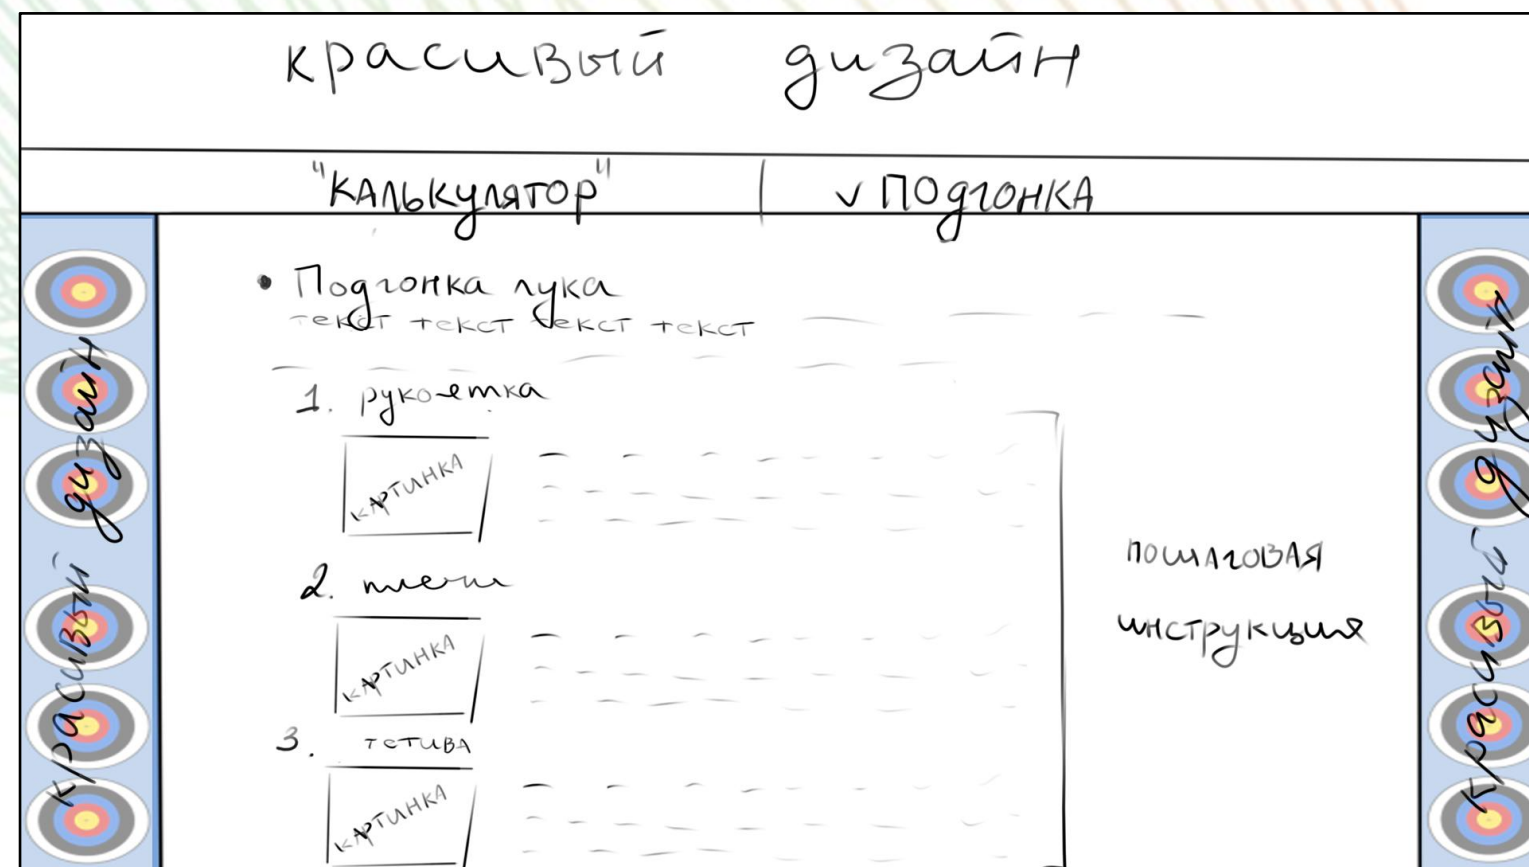 красивый дизайн
"КАЛЬКУЛЯТОР" ПОДГОНКА
Подгонка лука
текст текст текст текст
1. рукоятка
КАРТИНКА
2. плечи
КАРТИНКА
3. тетива
КАРТИНКА
пошаговая
инструкция
красивый дизайн
красивый дизайн